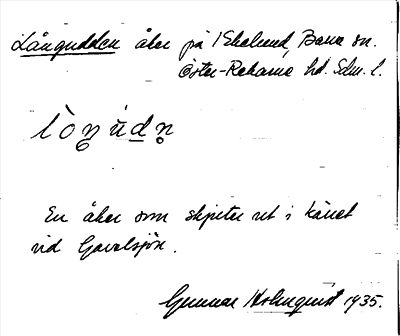 Långudden åker på Ekelund, Barva sn.
Öster-Rekarne hd. Sdm. l.
En åker som skjuter ut i kärret
vid Gavelsjön.
Gunnar Holmquist 1935.